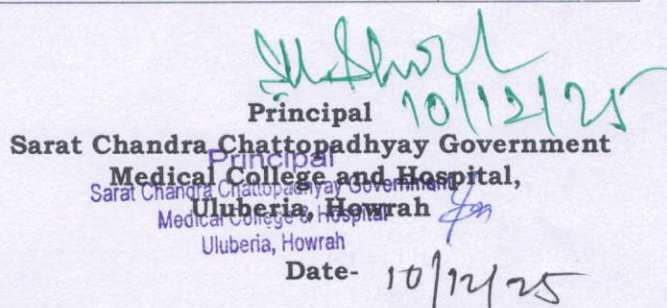 10/12/25
Principal
Sarat Chandra Chattopadhyay Government
Medical College and Hospital,
Uluberia, Howrah
Principal
Sarat Chandra Chattopadhyay Government
Medical College & Hospital
Uluberia, Howrah
Date- 10/12/25